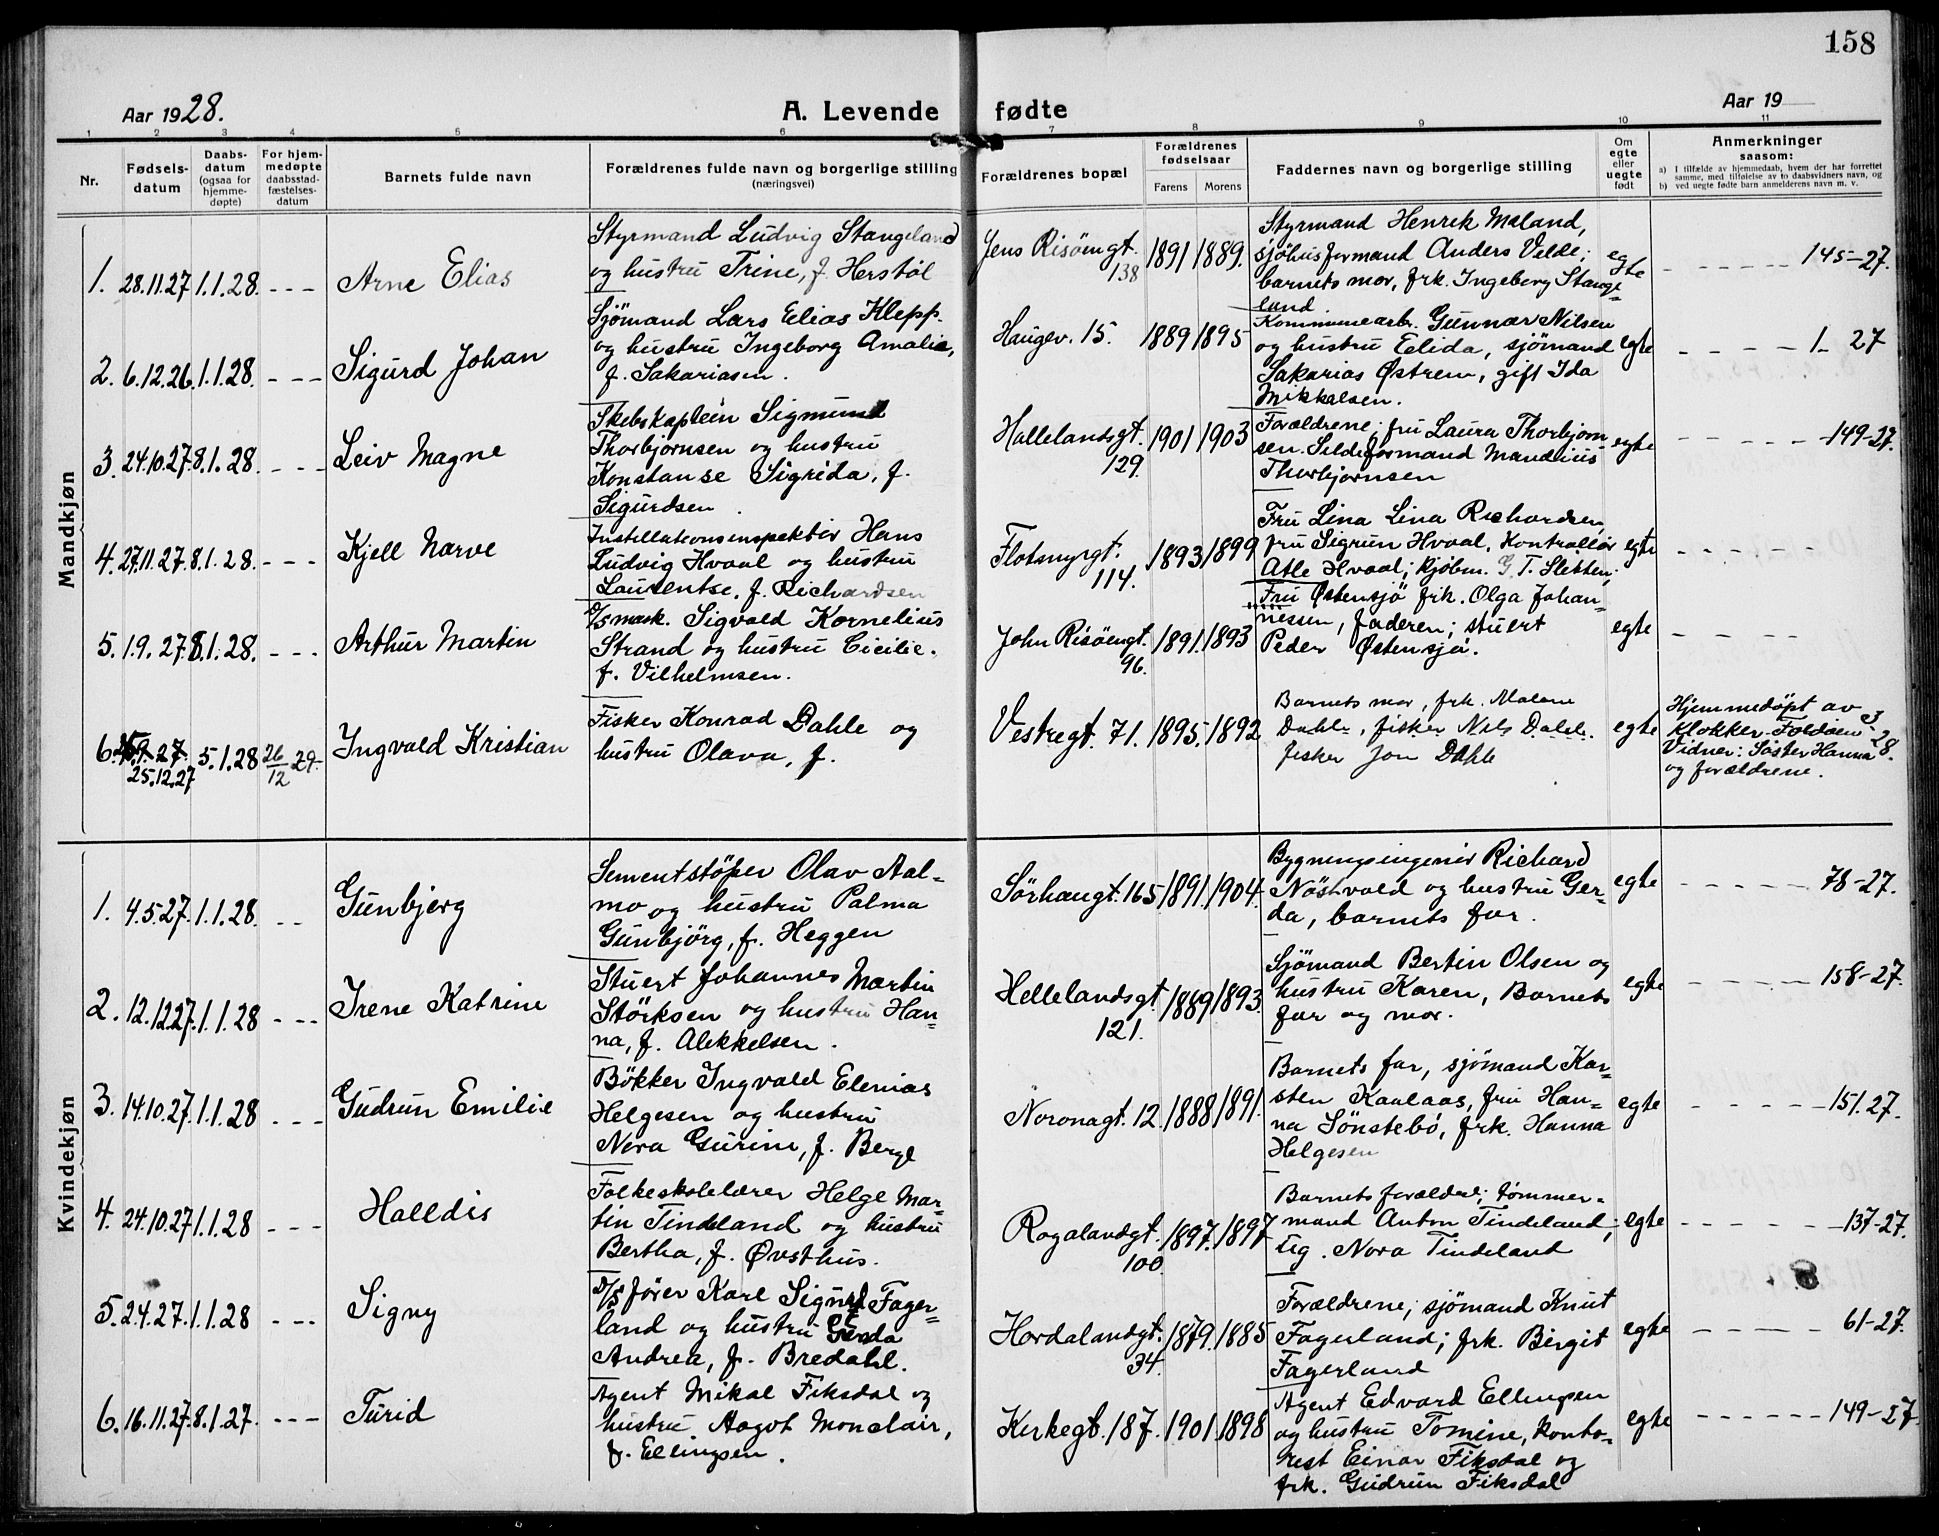 158
Aar 1928.
A. Levende fødte
Aar 19
1 2 3 4 5 6 7 8 9 10 11
Nr.
Fødselsdatum
Daabsdatum (ogsaa for hjemmedøpte)
For hjemmedøpte daabsstadfæstelsesdatum
Barnets fulde navn
Forældrenes fulde navn og borgerlige stilling (næringsvei)
Forældrenes bopæl
Forældrenes fødselsaar
Farens
Morens
Faddernes navn og borgerlige stilling
Om egte eller uegte født
Anmerkninger saasom:
a) I tilfælde av hjemmedaab, hvem der har forrettet samme, med tilføielse av to daabsvidners navn, og
b) ved uegte fødte barn anmelderens navn m. v.
Mandkjøn
1. 28.11.27 1.1.28. - - - Arne Elias
Styrmand Ludvig Stangeland
og hustru Trine, f. Herstøl
Jens Risöengt. 138 1891 1889.
Styrmand Henrik Maland,
sjöhusformand Anders Velde;
barnets mor, frk. Ingeborg Stange-
land
egte - - - - - 145-27.
2. 6.12.26 1.1.28. - - - Sigurd Johan
Sjömand Lars Elias Klepp
og hustru Ingeborg Amalie,
f. Sakariasen.
Haugev. 15. 1889 1895
Kommunearb. Gunnar Nilsen
og hustru Elida, sjömand
Sakarias Østrem, gift Ida
Mikkalsen.
egte - - - - - 1- 27
3. 24.10.27 8.1.28. - - - Leiv Magne
Skibskaptein Sigmund
Thorbjörnsen og hustru
Konstanse Sigrida, f.
Sigurdsen
Hallelandsgt. 129. 1901 1903
Forældrene; fru Laura Thorbjörn
sen. Sildeformand Mandius
Thorbjørnsen
egte - - - - - 149-27.
4. 27.11.27. 8.1.28. - - - Kjell Narve
Installationsinspektör Hans
Ludvig Hvaal og hustru
Laurentse, f. Richardsen
Flotmyrgt. 114. 1893 1899
Fru Lina Lina Richardsen,
fru Sigrun Hvaal, Kontrollör
Atle Hvaal; kjöbm. G. T. Sletten.
egte - - - - -
5. 1.9.27. 8.1.28. - - - Arthur Martin
D/S mask. Sigvald Kornelius
Strand og hustru Cicilie.
f. Vilhelmsen.
John Risöengt. 96. 1891. 1893
Fru Östensjö frk. Olga Johan-
nessen, faderen; stuert
Peder Östensjö.
egte - - - - -
6. 25.12.27 5.1.28 26/12 29. Ingvald Kristian
Fisker Konrad Dahle og
hustru Olava, f.
Vestregt. 71. 1895. 1892
Barnets mor, frk. Malene
Dahle, fisker Nils Dahle.
fisker Jon Dahle
egte
Hjemmedöpt av
Klokker Foldøen 3-28.
Vidner: Söster Hanna
og forældrene.
Kvindekjøn
1. 4.5.27. 1.1.28. - - Gunbjørg
Sementstöper Olav Aal-
mo og hustru Palma
Gunbjörg, f. Heggen
Sörhaugt. 165. 1891. 1904.
Bygningsingeniör Richard
Nöstvold og hustru Ger-
da, barnets far.
egte - - - - - 78-27.
2. 12.12.27. 1.1.28 - - - Irene Katrine
Stuert Johannes Martin
Störksen og hustru Han-
na, f. Alekkelsen.
Hellelandsgt. 121. 1889 1893.
Sjömand Bertin Olsen og
hustru Karen, Barnets
far og mor.
egte - - - - - 158-27.
3. 14.10.27. 1.1.28 - - - Gudrun Emilie
Bökker Ingvald Elenias
Helgesen og hustru
Nora Gurine, f. Berge
Noronagt. 12. 1888 1891.
Barnets far, sjömand Kar-
sten Kaalaas, fru Han-
na Sönstebö, frk. Hanna
Helgesen
egte - - - - - 151.27.
4. 24.10.27 1.1.28 - - - Halldis
Folkeskolelærer Helge Mar-
tin Tindeland og hustru
Bertha, f. Øvsthus.
Rogalandgt. 100. 1897. 1897
Barnets forældre; tömmer-
mand Anton Tindeland;
ug. Nora Tindeland
egte - - - - - 137-27.
5. 2.4.27. 1.1.28 - - - Signy
D/S förer Karl Sigurd Fager-
land og hustru Gerda
Andrea, f. Bredahl.
Hordalandgt. 34. 1879. 1885
Forældrene; sjömand Knut
Fagerland; frk. Birgit
Fagerland
egte - - - - - 61-27.
6. 16.11.27. 8.1.27. - - - Turid
Agent Mikal Fiksdal og
hustru Aagot Monclair,
f. Ellingsen.
Kirkegt. 187. 1901. 1898
Agent Edvard Ellingsen
og hustru Tomine, konto-
rist Einar Fiksdal og
frk. Gudrun Fiksdal
egte - - - - - 149-27.